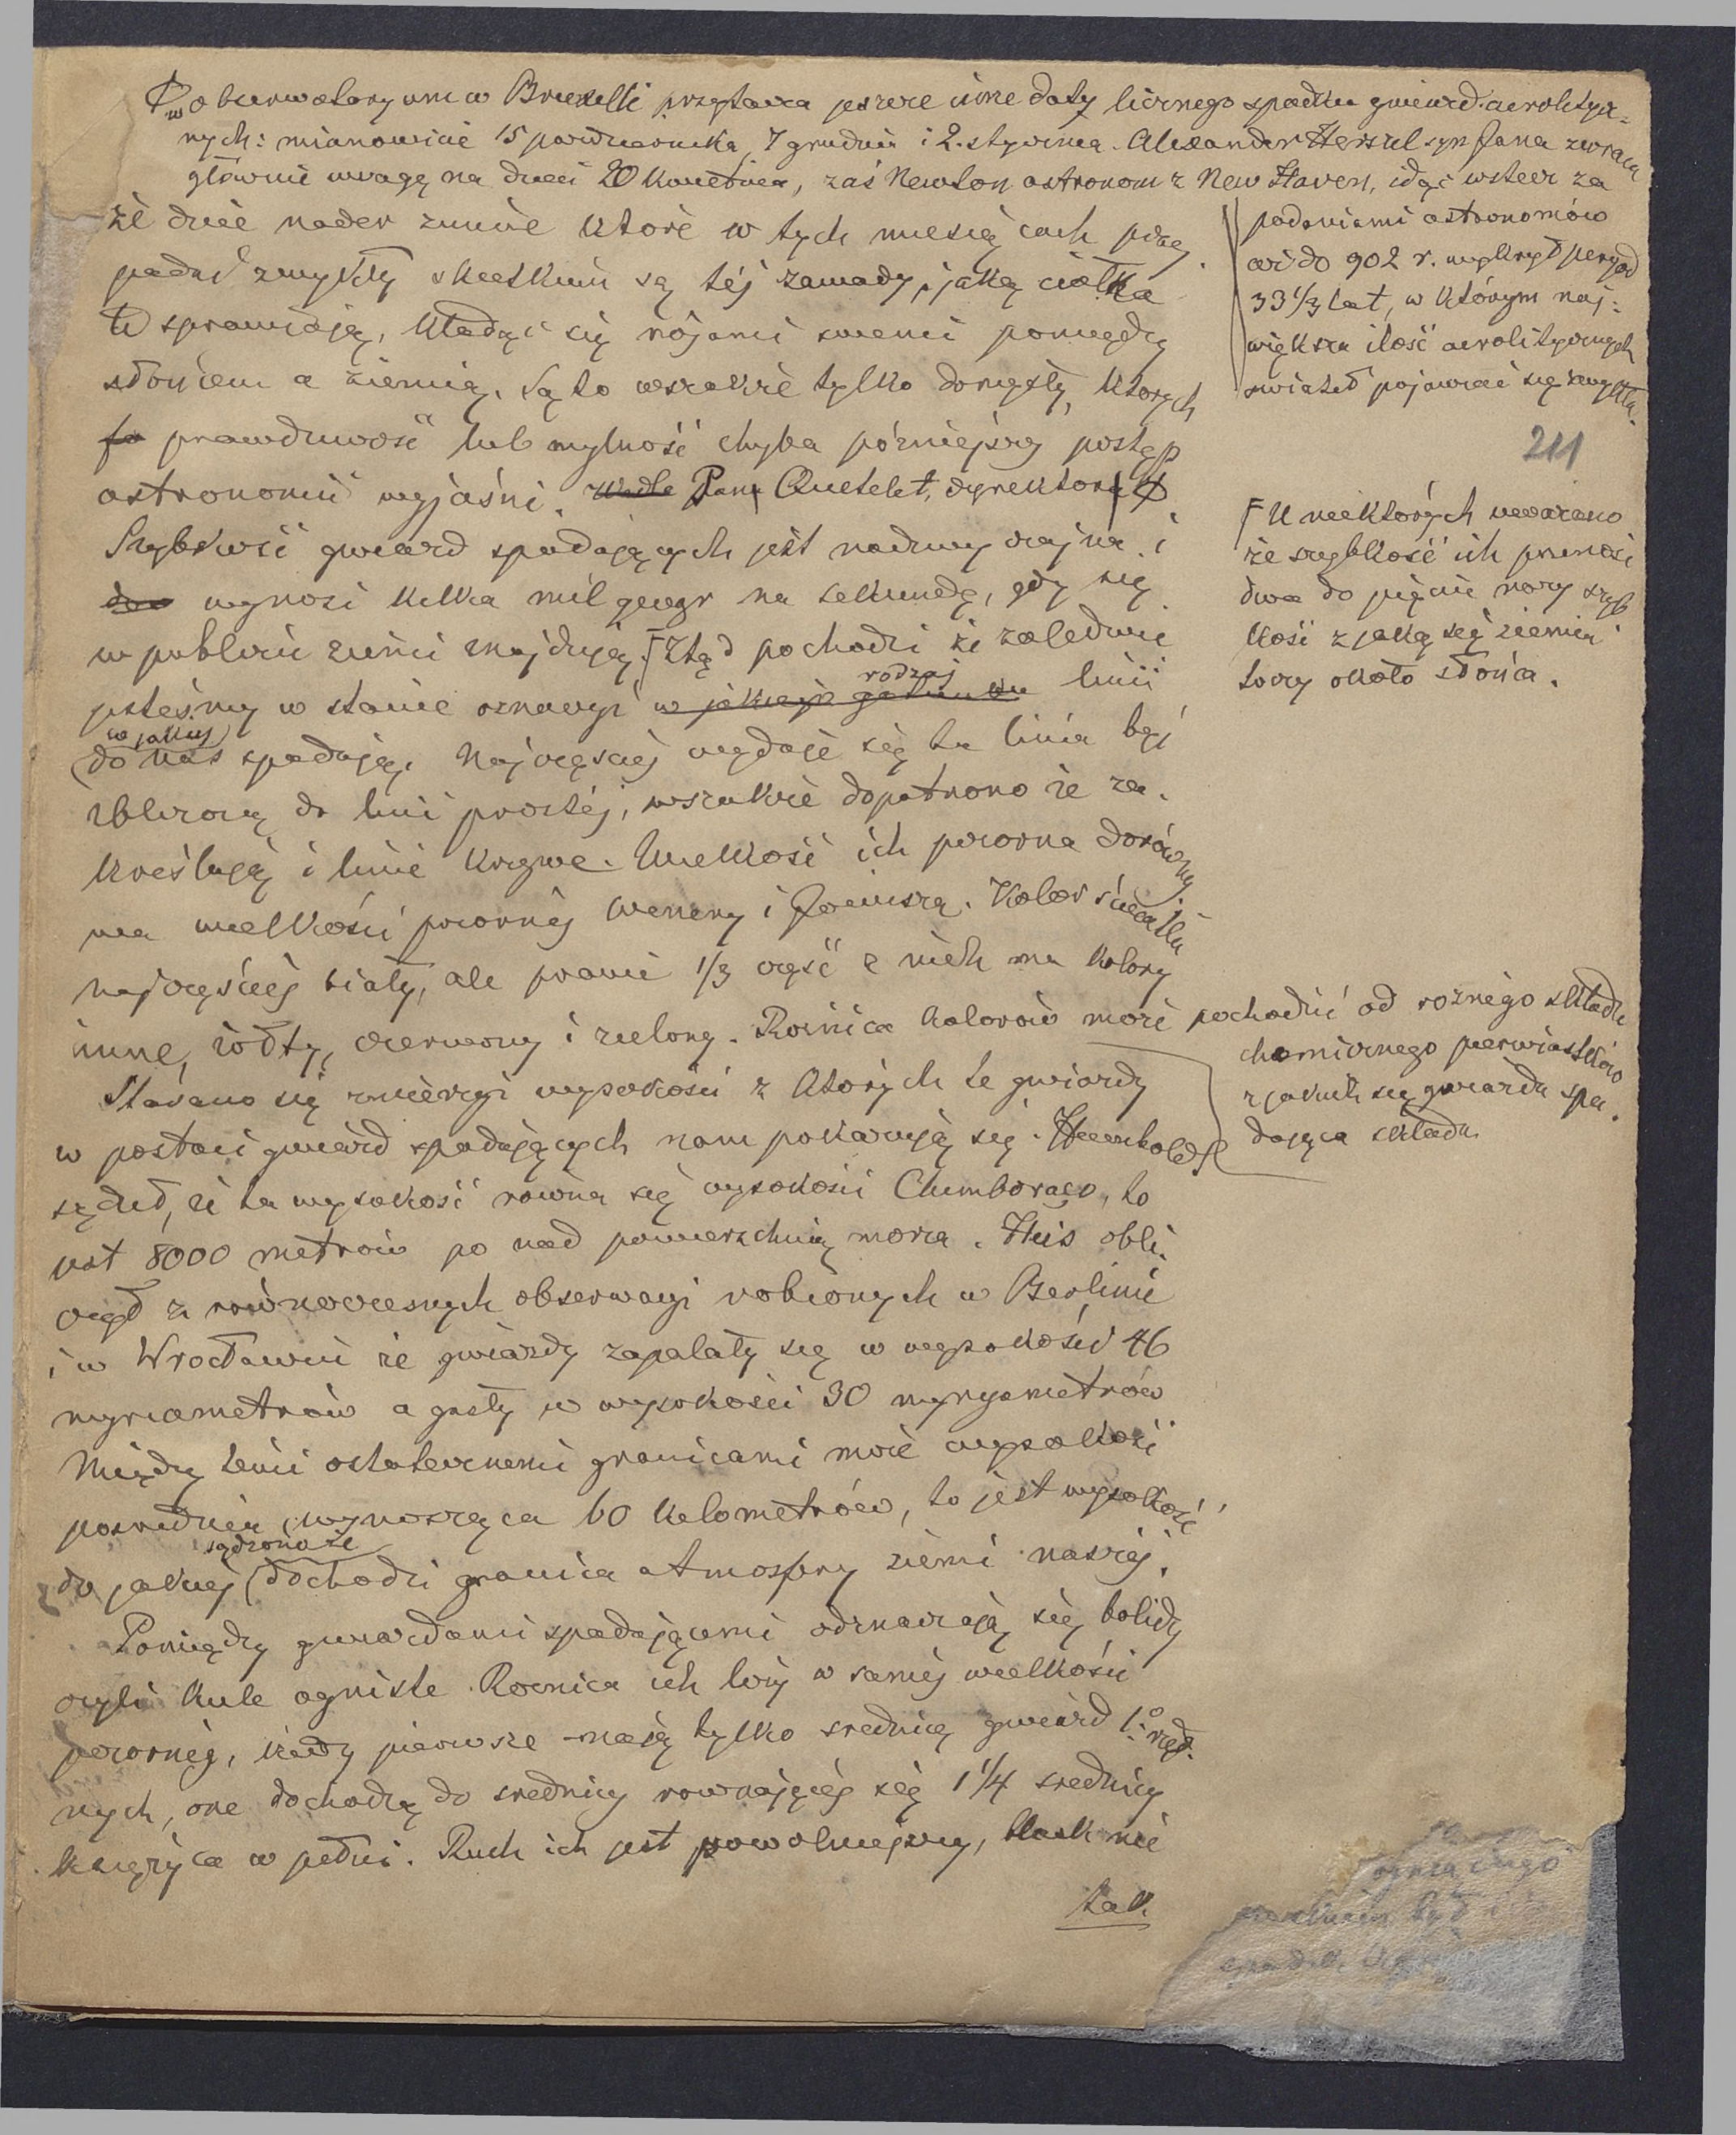 ₵ w obserwatoryum w Bruxelli przytacza jeszcze inne daty licznego spadku gwiazd aerolitycz=
nych: mianowicie 15 października, 7 grudnia i 2. stycznia. Alexander Herszel syn Jana zwraca
głównie uwagę na dzień 20 kwietnia, zaś Newton astronom z New Haven, idąc wstecz za
podaniami astronomów
aż do 902 r. wykrył peryod
33 1/3 lat, w którym naj=
większa ilość aerolitycznych
świateł pojawiać się zwykła.
211
że dnie nader zimne które w tych miesiącach przy
padać zwykły skutkiem są téj zawady, jaką ciałka
te sprawiają, kładąc się rójami swemi pomiędzy
słońcem a ziemią. Są to wszakże tylko domysły, których
prawdziwość lub mylność chyba póżniejszy postęp
astronomii wyjaśni. Wedle Pana Quetelet, dyrektora ₵
Szybkość gwiazd spadających jest nadzwyczajna i
wynosi kilka mil geogr na sekundę, gdy się
w pobliżu ziemi znajdują. ⌈Ztąd pochodzi że zaledwie
⌈U niektórych uważano
że szybkość ich przenosi
dwa do pięciu razy szyb
kość z jaką się ziemia
toczy około słońca.
jesteśmy w stanie oznaczyć w jakiej rodzaj linii
w jakiej
(do nas spadają. Najczęściej wydaje się ta linia być
zbliżoną do linii prostéj, wszakże dopatrzono że za=
kreślają i linie krzywe. Wielkość ich pozorna dorówny
wa wielkości pozornéj Wenery i Jowisza. Kolor światła
najczęściéj biały, ale prawie 1/3 część z nich ma kolory
inne, żółty, czerwony i zielony. Różnica kolorów może pochodzić od roznégo składu
chemicznego pierwiastków
z jakich się gwiazda spa=
dająca składa.
Starano się zmierzyć wysokości z których te gwiazdy
w postaci gwiazd spadających nam pokazują się. Humboldt
sądził, że ta wysokość równa się wysokości Chimborazo, to
jest 8000 metrów po nad powierzchnią morza. Heis obli=
czył z równoczesnych obserwacyi robionych w Berlinie
i w Wrocławiu że gwiazdy zapalały się w wysokości 46
myriametrów a gasły w wysokości 30 myryametrów
Między temi ostatecznemi granicami może wysokość
posrednia, wynosząca 60 kilometrów, to jest wysokość
sądzono że
do jakiej (dochodzi granica atmosfery ziemi naszéj.
Pomiędzy gwiazdami spadającemi odznaczają się bolidy
czyli kule ogniste. Roznica ich leży w saméj wielkości
pozornéj, kiedy pierwsze mają tylko srednicę gwiazd 1.o rzęd=
nych, one dochodzą do srednicy rownającéj się 1 1/4 srednicy
księżyca w pełni. Ruch ich jest powolniejszy, blask nie
tak